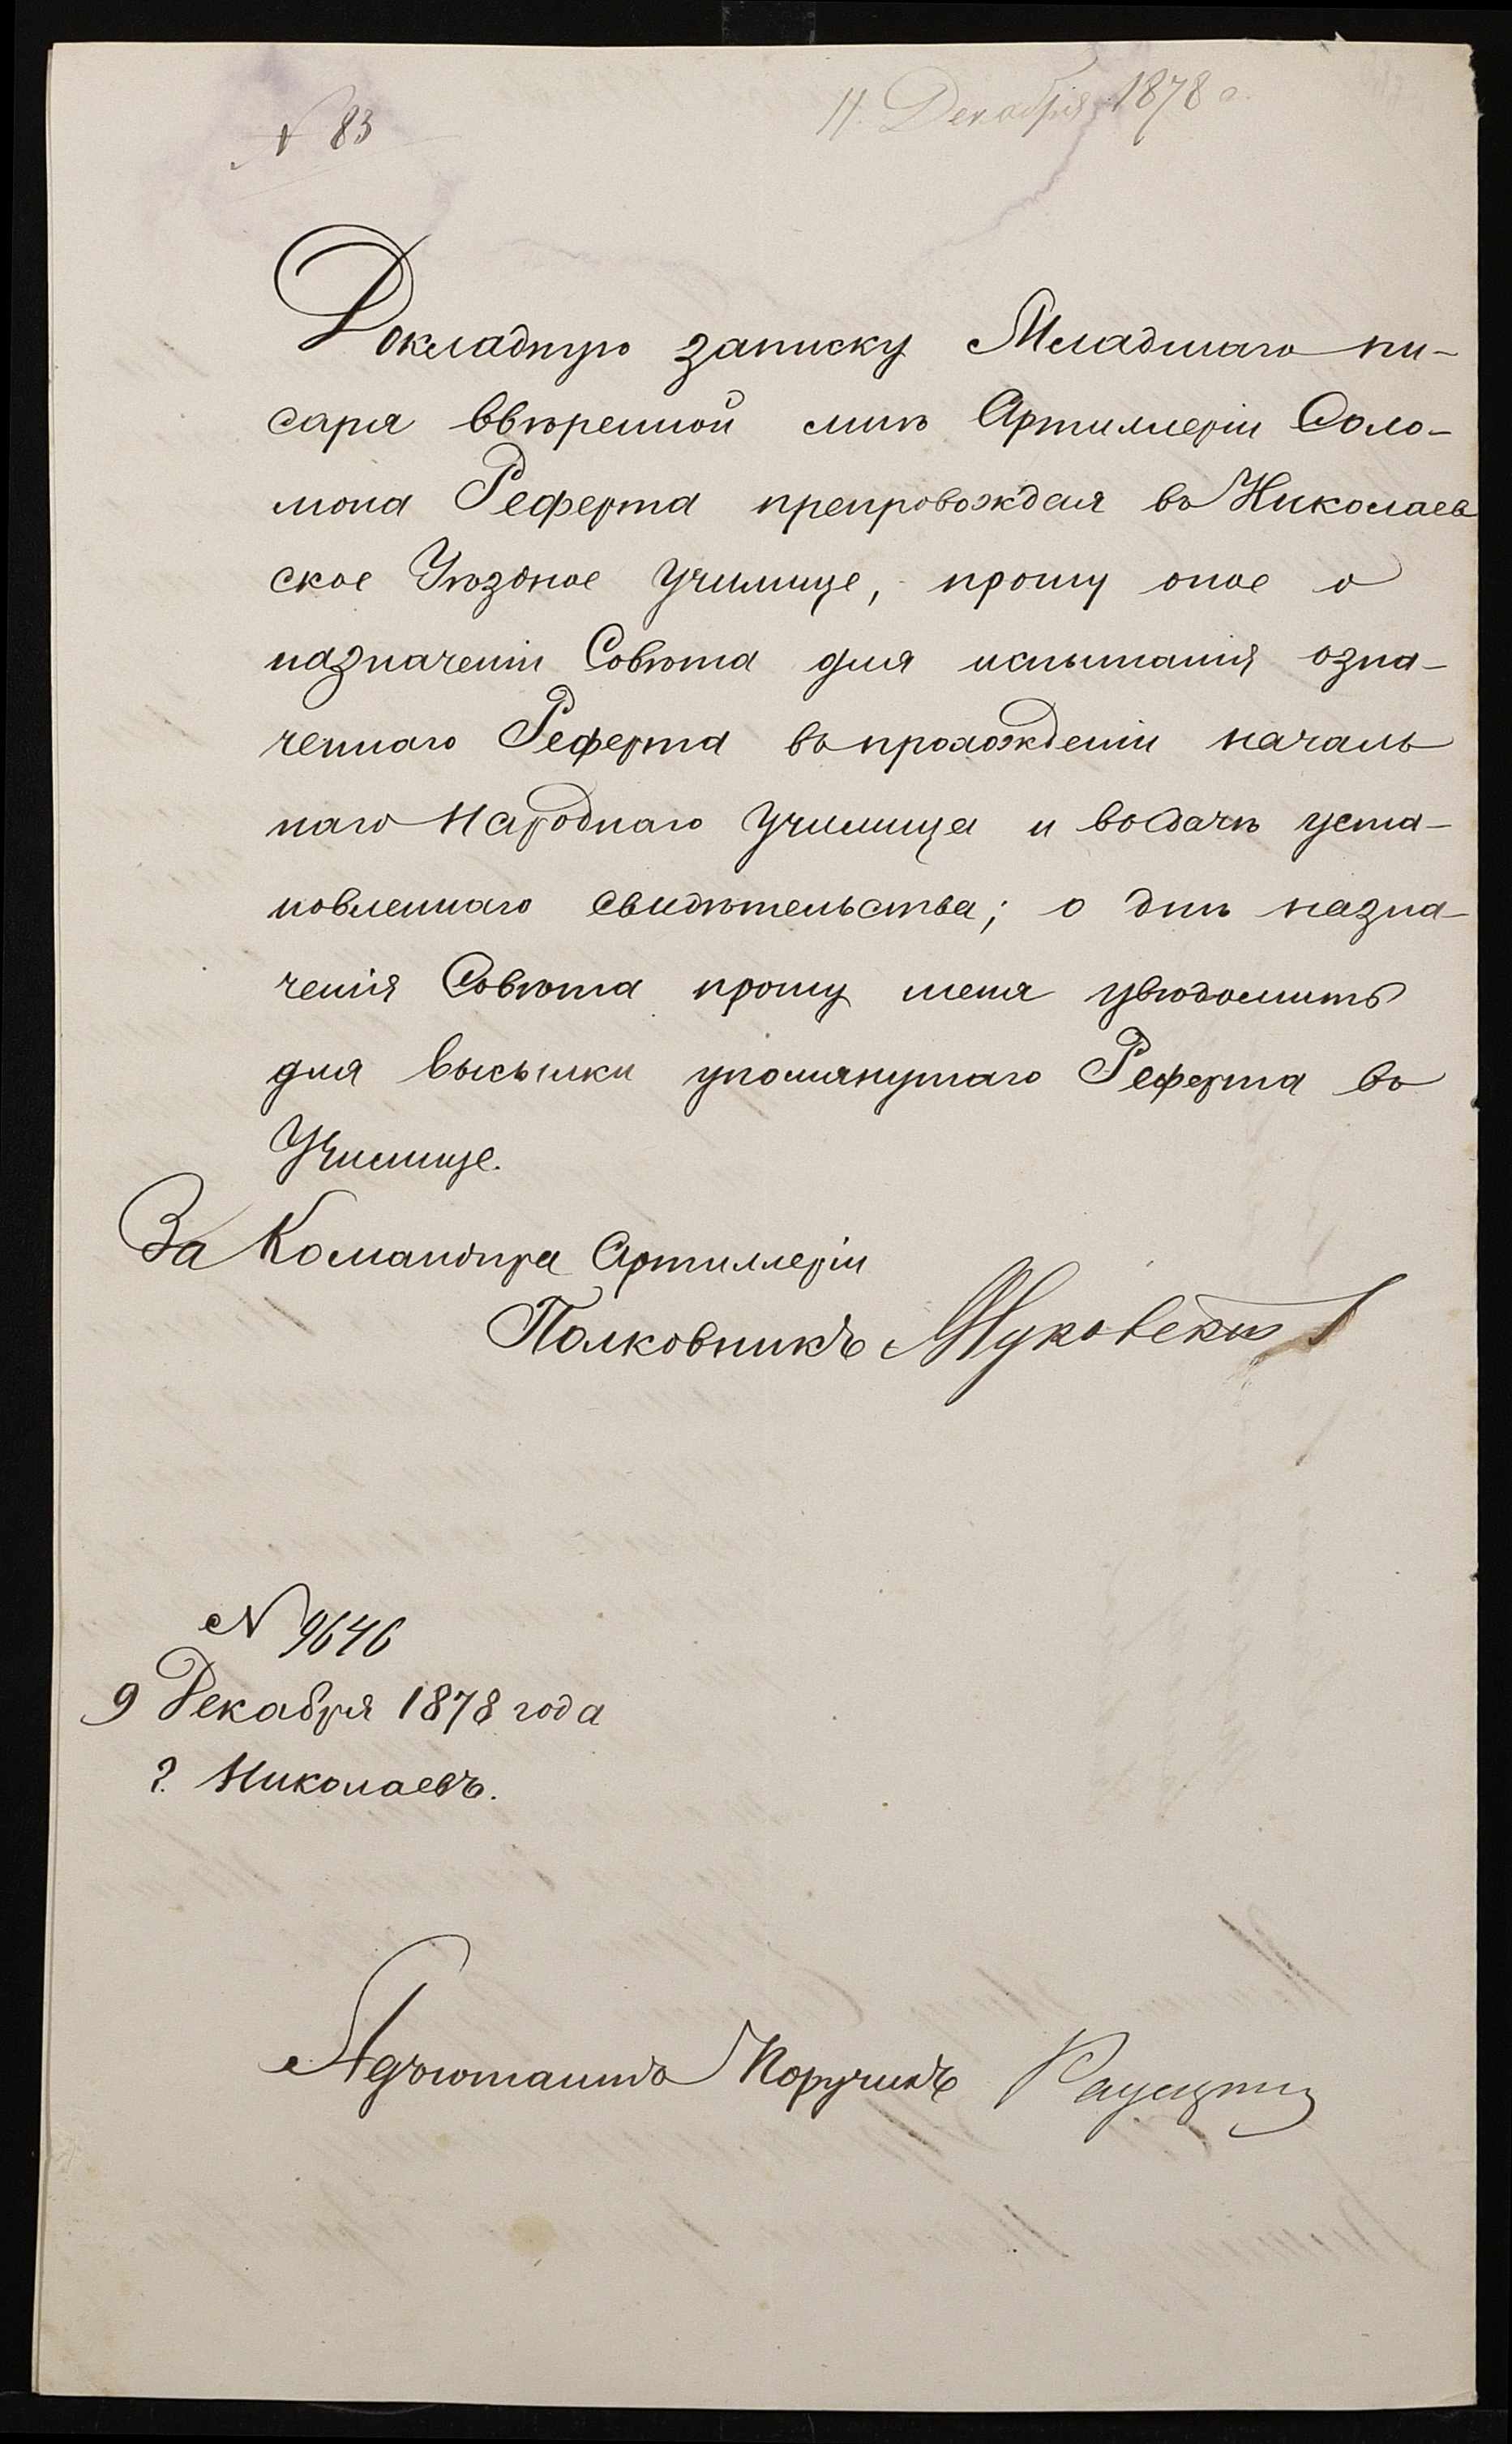 № 83
11 Декабря 1878 г.
Докладную записку Младшаго пи-
саря ввѣренной мнѣ Артиллеріи Соло-
мона Реферта препровождая въ Николаев
ское Уѣздное Училище, прошу оное о
назначеніи Совѣта для испытанія озна-
ченнаго Реферта въ прохожденіи началь
наго Народнаго Училища и выдачѣ уста-
новленнаго свидѣтельства; о днѣ назна-
ченія Совѣта прошу меня увѣдомить
для высылки упомянутаго Реферта въ
Училище.
За Командира Артиллеріи
Полковникъ
№ 9646
9 Декабря 1878 года
г. Николаевъ.
Адъютантъ Поручикъ